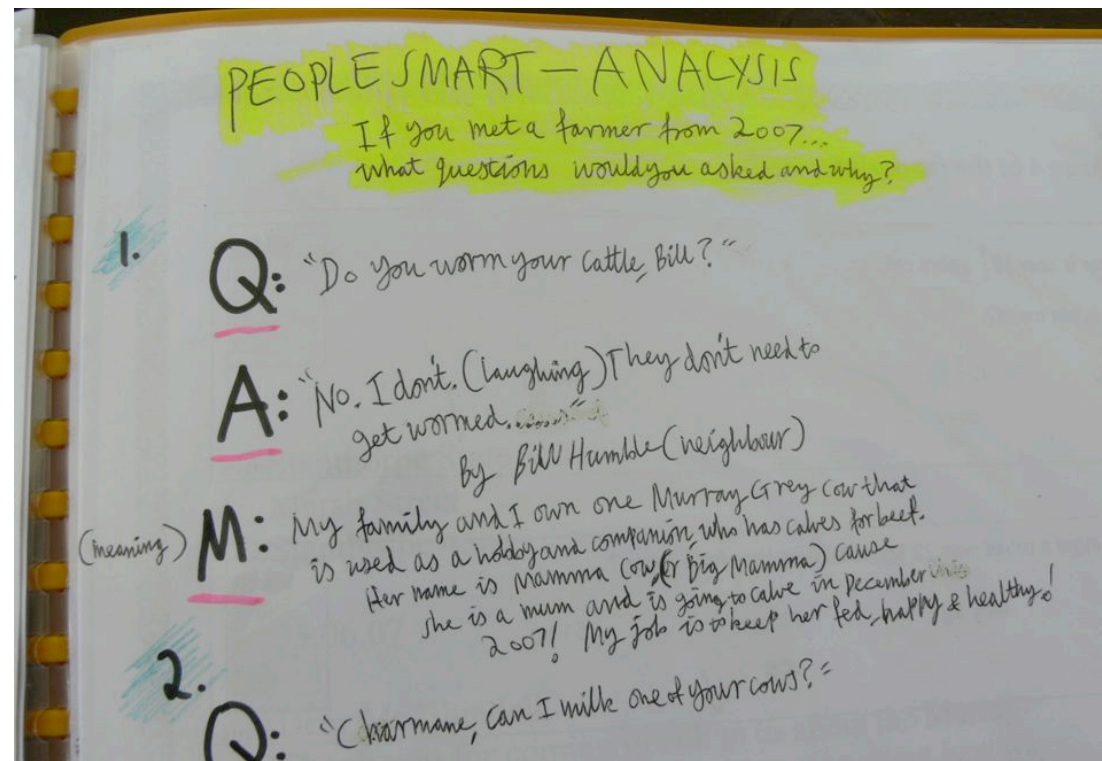 PEOPLE SMART – ANALYSIS
If you met a farmer from 2007...
what questions would you asked and why?
1.
Q: "Do you worm your cattle, Bill?"
A: "No. I don't. (laughing) They don't need to
get wormed......"
By Bill Humble (neighbour)
(meaning) M: My family and I own one Murray Grey cow that
is used as a hobby and companion, who has calves for beef.
Her name is Mamma Cow, (or Big Mamma) cause
she is a mum and is going to calve in December
2007! My job is to keep her fed, happy & healthy!
2.
Q: "Charmane, can I milk one of your cows?"